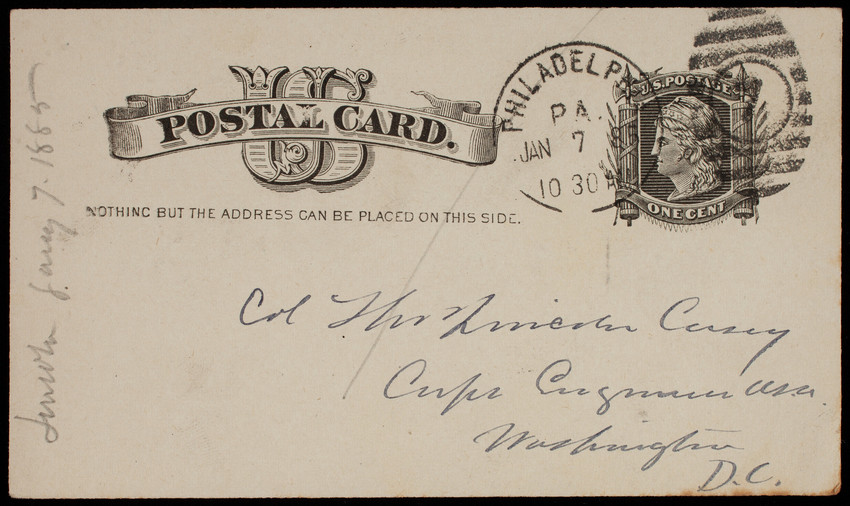 US
POSTAL CARD.
NOTHING BUT THE ADDRESS CAN BE PLACED ON THIS SIDE.
PHILADELPHIA
PA.
JAN 7 85
10 30 A
U.S. POSTAGE
ONE CENT
Col Thos Lincoln Casey
Corps Engineers USA.
Washington
D.C.
Lincoln Jany 7. 1885